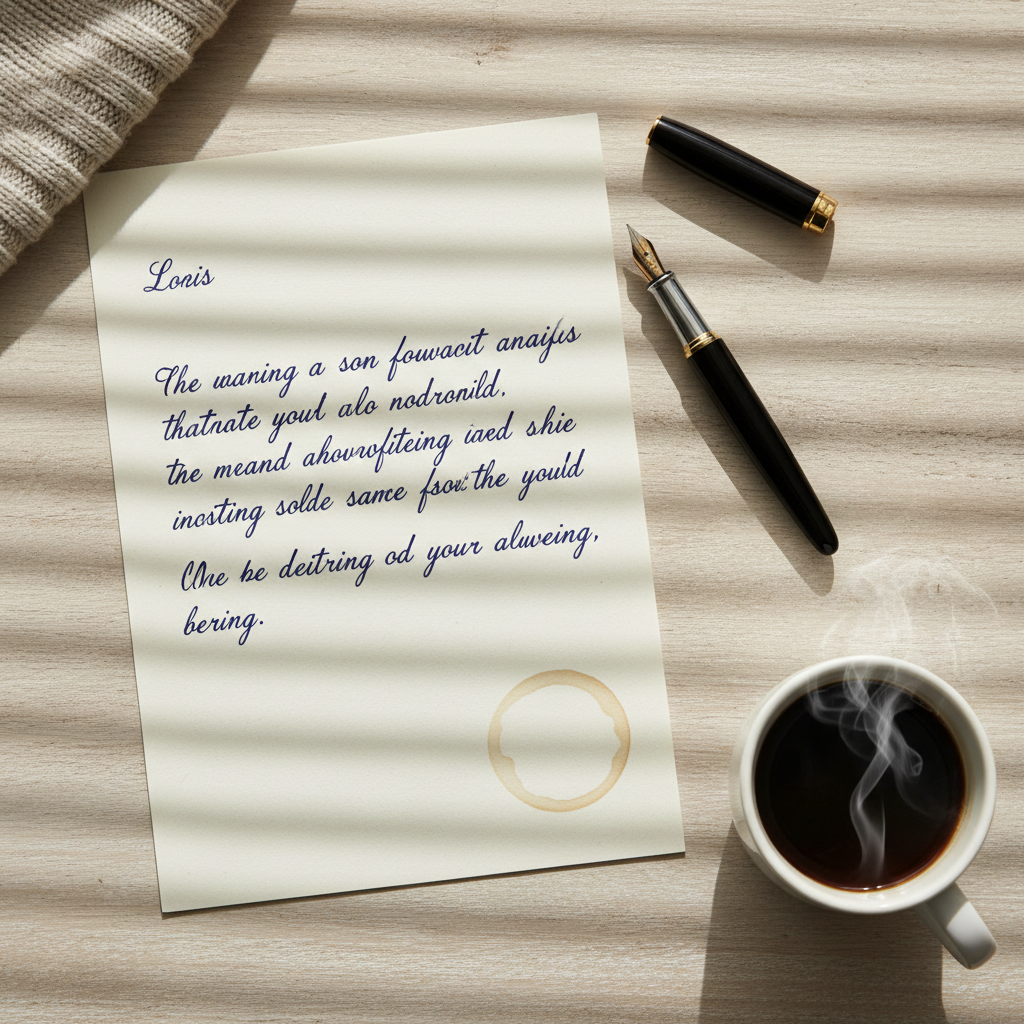 Lonis
The waning a son fouvacit
thatnate youl alo nodronild,
the meand ahovrofiteing iaed shie
incsting solde sance the yould
be deitring od your aluveing,
bering.